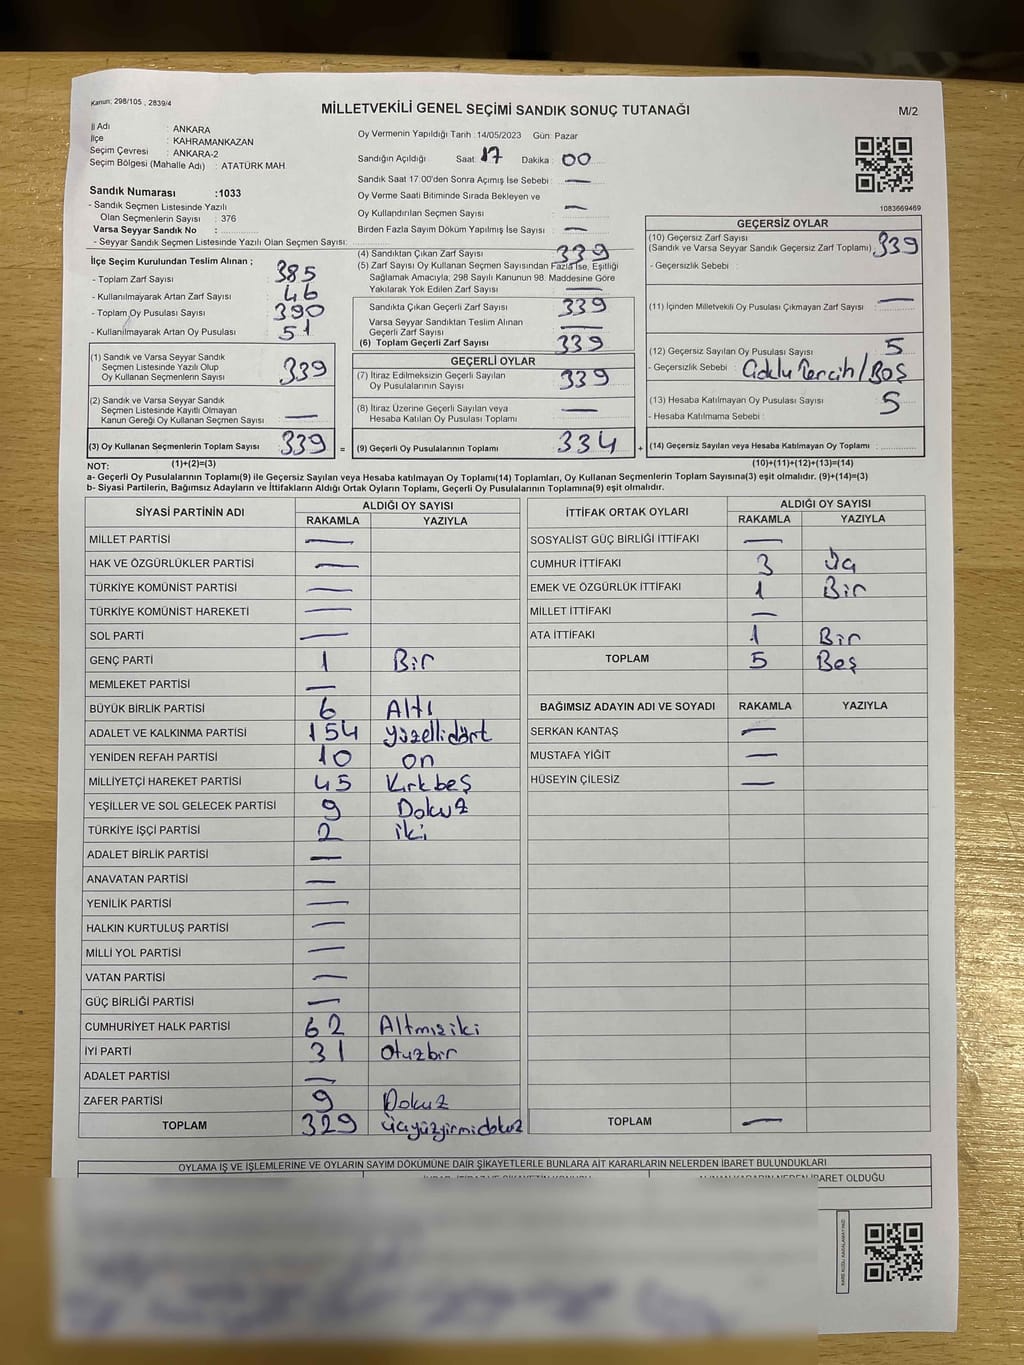 Kanun; 298/105 , 2839/4
MİLLETVEKİLİ GENEL SEÇİMİ SANDIK SONUÇ TUTANAĞI
M/2
İl Adı : ANKARA
İlçe : KAHRAMANKAZAN
Seçim Çevresi : ANKARA-2
Seçim Bölgesi (Mahalle Adı) : ATATÜRK MAH.
Sandık Numarası :1033
- Sandık Seçmen Listesinde Yazılı
Olan Seçmenlerin Sayısı : 376
Varsa Seyyar Sandık No :
- Seyyar Sandık Seçmen Listesinde Yazılı Olan Seçmen Sayısı:
Oy Vermenin Yapıldığı Tarih : 14/05/2023 Gün: Pazar
Sandığın Açıldığı Saat : 17 Dakika : 00
Sandık Saat 17:00'den Sonra Açımış İse Sebebi : —
Oy Verme Saati Bitiminde Sırada Bekleyen ve
Oy Kullandırılan Seçmen Sayısı : —
Birden Fazla Sayım Döküm Yapılmış İse Sayısı : —
1083669469
İlçe Seçim Kurulundan Teslim Alınan ;
- Toplam Zarf Sayısı : 385
- Kullanılmayarak Artan Zarf Sayısı : 46
- Toplam Oy Pusulası Sayısı : 390
- Kullanılmayarak Artan Oy Pusulası : 51
(1) Sandık ve Varsa Seyyar Sandık
Seçmen Listesinde Yazılı Olup
Oy Kullanan Seçmenlerin Sayısı : 339
(2) Sandık ve Varsa Seyyar Sandık
Seçmen Listesinde Kayıtlı Olmayan
Kanun Gereği Oy Kullanan Seçmen Sayısı : —
(3) Oy Kullanan Seçmenlerin Toplam Sayısı : 339 =
(4) Sandıktan Çıkan Zarf Sayısı : 339
(5) Zarf Sayısı Oy Kullanan Seçmen Sayısından Fazla İse, Eşitliği
Sağlamak Amacıyla, 298 Sayılı Kanunun 98. Maddesine Göre
Yakılarak Yok Edilen Zarf Sayısı : —
Sandıkta Çıkan Geçerli Zarf Sayısı : 339
Varsa Seyyar Sandıktan Teslim Alınan
Geçerli Zarf Sayısı : —
(6) Toplam Geçerli Zarf Sayısı : 339
GEÇERLİ OYLAR
(7) İtiraz Edilmeksizin Geçerli Sayılan
Oy Pusulalarının Sayısı : 339
(8) İtiraz Üzerine Geçerli Sayılan veya
Hesaba Katılan Oy Pusulaları Toplamı : —
(9) Geçerli Oy Pusulalarının Toplamı : 334 +
GEÇERSİZ OYLAR
(10) Geçersiz Zarf Sayısı
(Sandık ve Varsa Seyyar Sandık Geçersiz Zarf Toplamı) : 339
- Geçersizlik Sebebi :
(11) İçinden Milletvekili Oy Pusulası Çıkmayan Zarf Sayısı : —
(12) Geçersiz Sayılan Oy Pusulası Sayısı : 5
- Geçersizlik Sebebi : Çoklu Tercih/Boş
(13) Hesaba Katılmayan Oy Pusulası Sayısı : 5
- Hesaba Katılmama Sebebi :
(14) Geçersiz Sayılan veya Hesaba Katılmayan Oy Toplamı :
NOT: (1)+(2)=(3) (10)+(11)+(12)+(13)=(14)
a- Geçerli Oy Pusulalarının Toplamı(9) ile Geçersiz Sayılan veya Hesaba katılmayan Oy Toplamı(14) Toplamları, Oy Kullanan Seçmenlerin Toplam Sayısına(3) eşit olmalıdır. (9)+(14)=(3)
b- Siyasi Partilerin, Bağımsız Adayların ve İttifakların Aldığı Ortak Oyların Toplamı, Geçerli Oy Pusulalarının Toplamına(9) eşit olmalıdır.
SİYASİ PARTİNİN ADI ALDIĞI OY SAYISI
RAKAMLA YAZIYLA
MİLLET PARTİSİ —
HAK VE ÖZGÜRLÜKLER PARTİSİ —
TÜRKİYE KOMÜNİST PARTİSİ —
TÜRKİYE KOMÜNİST HAREKETİ —
SOL PARTİ —
GENÇ PARTİ 1 Bir
MEMLEKET PARTİSİ —
BÜYÜK BİRLİK PARTİSİ 6 Altı
ADALET VE KALKINMA PARTİSİ 154 yüzellidört
YENİDEN REFAH PARTİSİ 10 on
MİLLİYETÇİ HAREKET PARTİSİ 45 Kırkbeş
YEŞİLLER VE SOL GELECEK PARTİSİ 9 Dokuz
TÜRKİYE İŞÇİ PARTİSİ 2 iki
ADALET BİRLİK PARTİSİ —
ANAVATAN PARTİSİ —
YENİLİK PARTİSİ —
HALKIN KURTULUŞ PARTİSİ —
MİLLİ YOL PARTİSİ —
VATAN PARTİSİ —
GÜÇ BİRLİĞİ PARTİSİ —
CUMHURİYET HALK PARTİSİ 62 Altmışiki
İYİ PARTİ 31 otuzbir
ADALET PARTİSİ —
ZAFER PARTİSİ 9 Dokuz
TOPLAM 329 üçyüzyirmidokuz
İTTİFAK ORTAK OYLARI ALDIĞI OY SAYISI
RAKAMLA YAZIYLA
SOSYALİST GÜÇ BİRLİĞİ İTTİFAKI —
CUMHUR İTTİFAKI 3 Üç
EMEK VE ÖZGÜRLÜK İTTİFAKI 1 Bir
MİLLET İTTİFAKI —
ATA İTTİFAKI 1 Bir
TOPLAM 5 Beş
BAĞIMSIZ ADAYIN ADI VE SOYADI RAKAMLA YAZIYLA
SERKAN KANTAŞ —
MUSTAFA YİĞİT —
HÜSEYİN ÇİLESİZ —
TOPLAM —
OYLAMA İŞ VE İŞLEMLERİNE VE OYLARIN SAYIM DÖKÜMÜNE DAİR ŞİKAYETLERLE BUNLARA AİT KARARLARIN NELERDEN İBARET BULUNDUKLARI
İBARET OLDUĞU